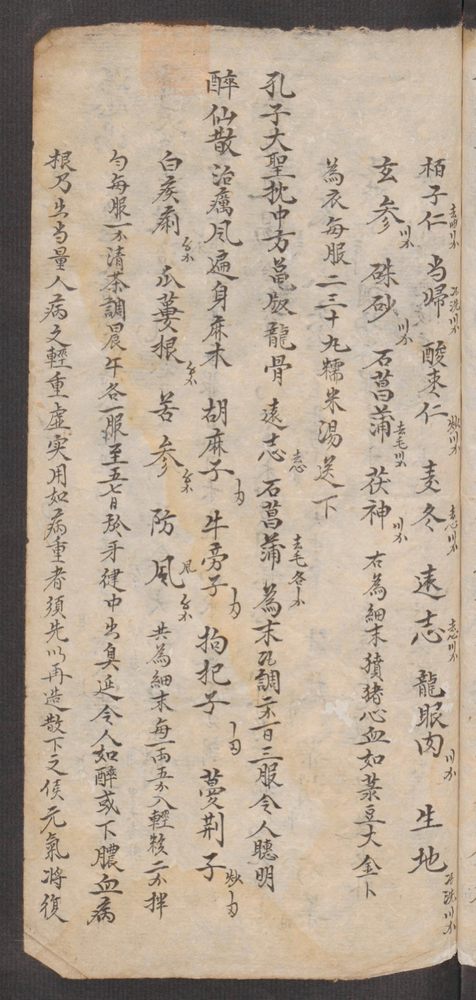 栢子仁 当歸 酸枣仁 麦冬 遠志 龍眼肉 生地
玄参 硃砂 石菖蒲去毛 茯神 右為細末獖猪心血如菉豆大金卜
為衣每服二三十九糯米湯送下
孔子大聖枕中方 龟版 龍骨 遠志 石菖蒲去毛 為末 調 日三服令人聰明
醉仙散 治癘風遍身麻木 胡麻子 牛旁子 拘杞子 蔓荆子炒
白疾藜 瓜蔞根 苦参 防風 共為細末每一両五分入輕粉二分拌
匀每服一分清茶調晨午各一服至五七日於牙縫中出臭延令人如醉或下膿血病
根乃出当量人病之輕重虚实用如病重者須先以再造散下之候元氣将復